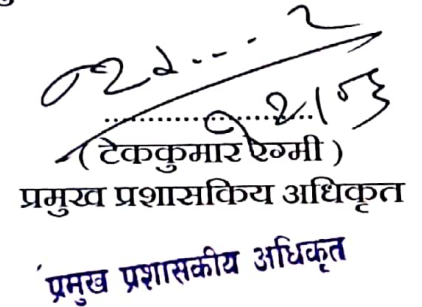 (टेककुमार ऐग्मी )
प्रमुख प्रशासकिय अधिकृत
प्रमुख प्रशासकीय अधिकृत